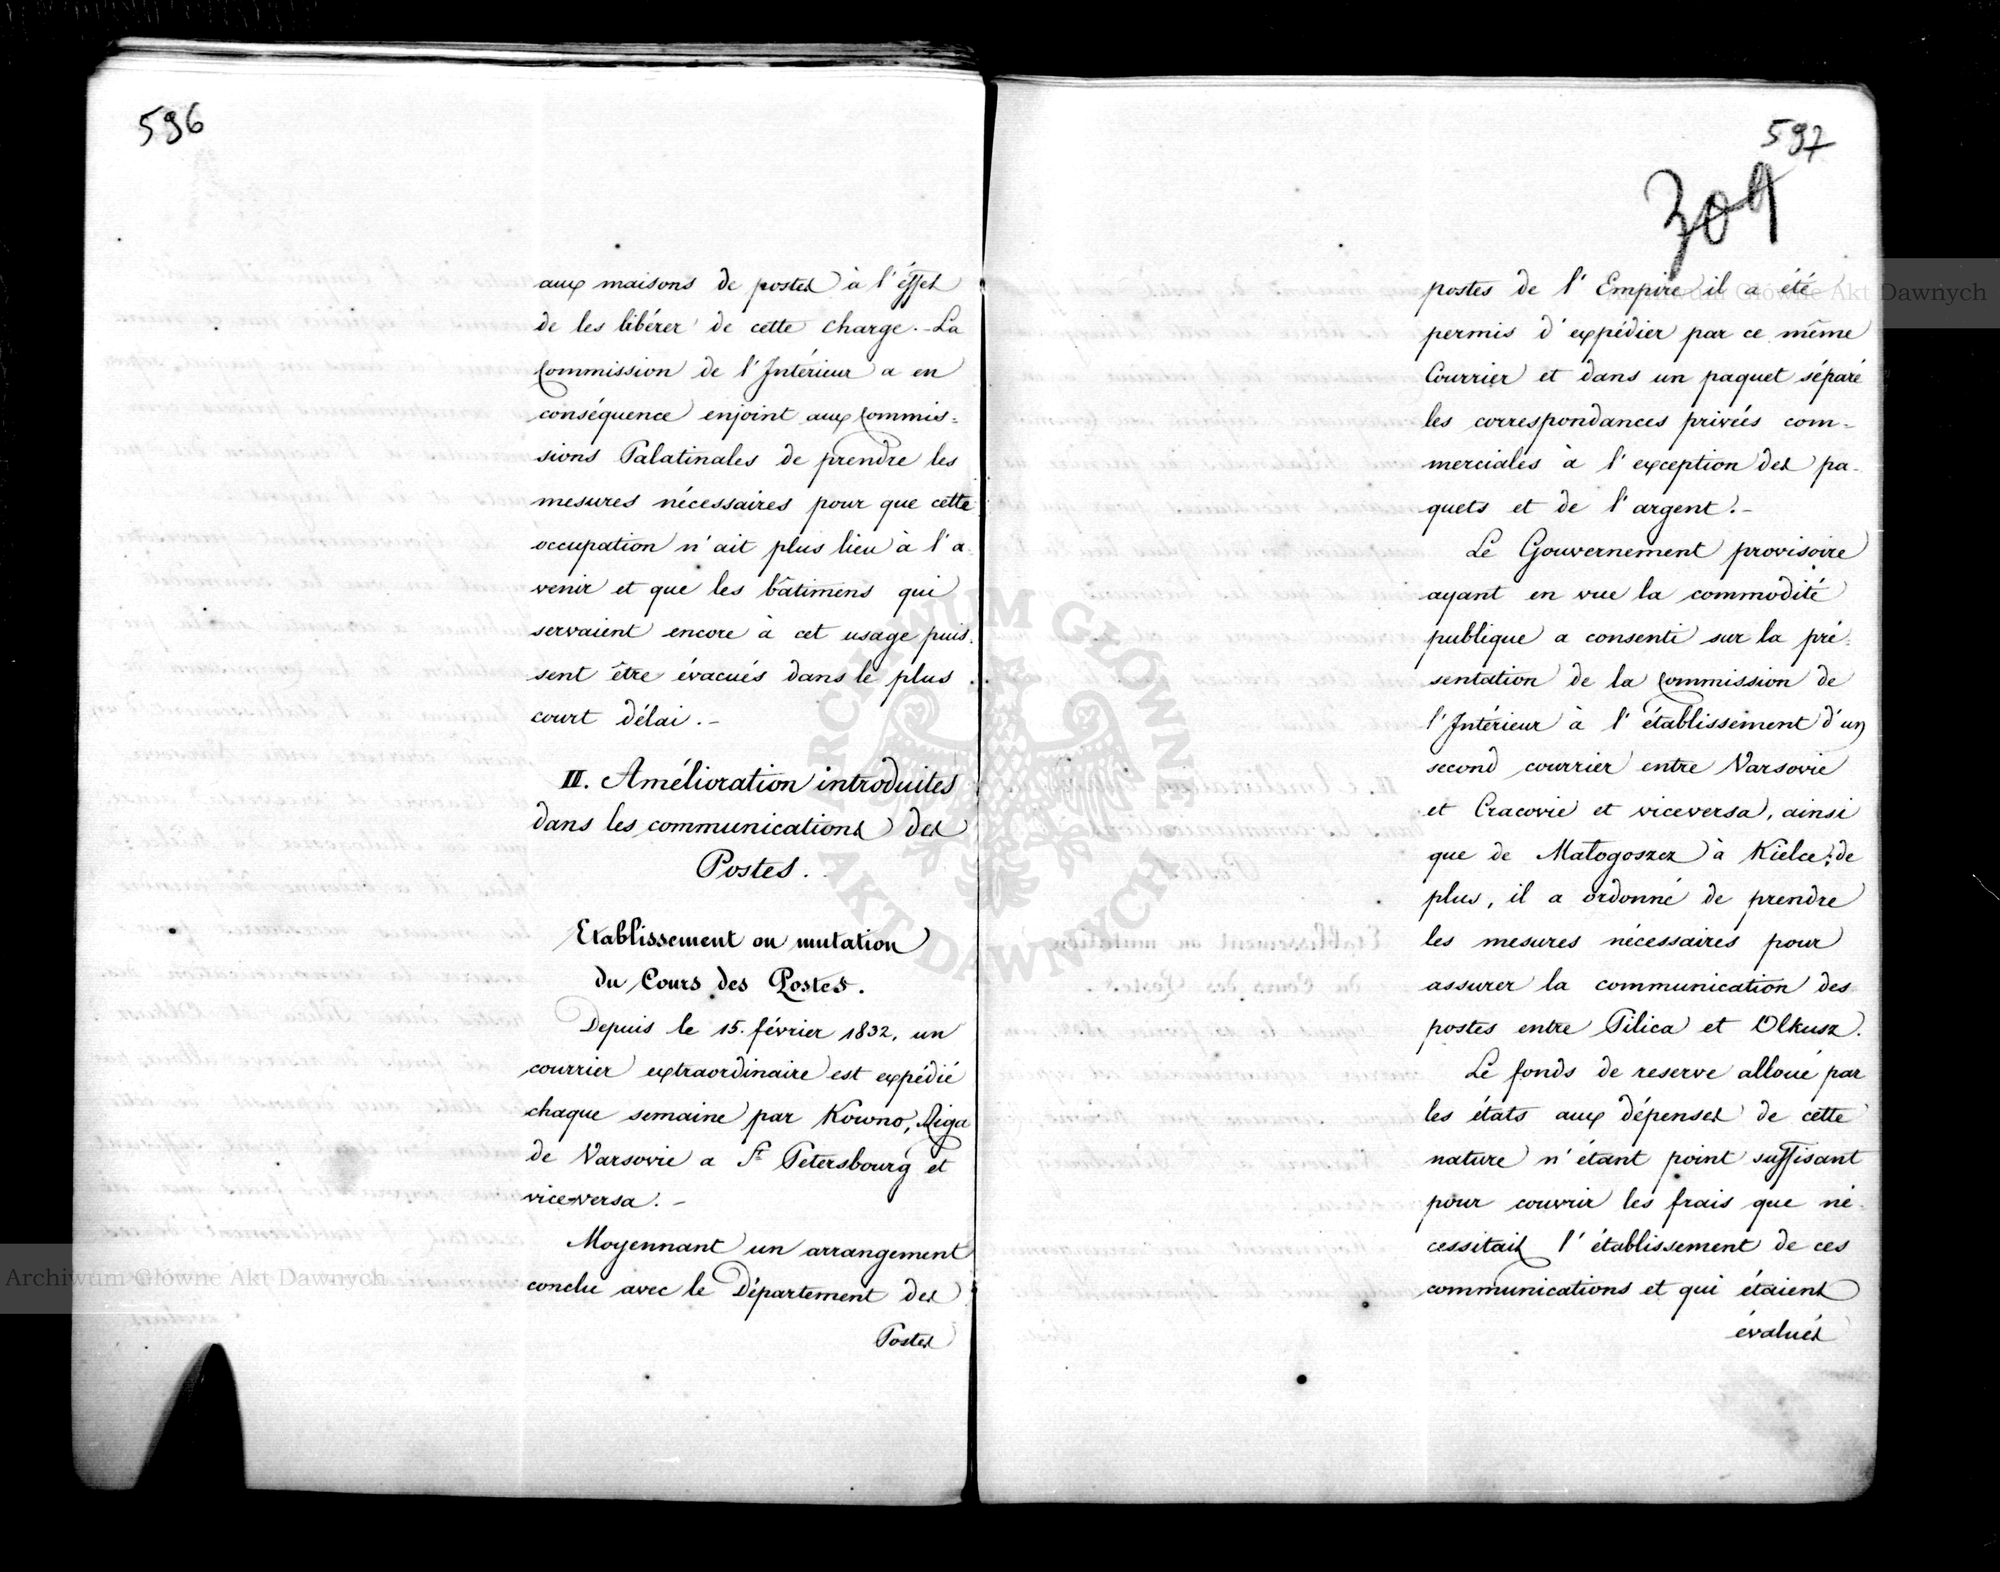 596
aux maisons de postes à l'éffet
de les libérer de cette charge. - La
Commission de l'Intérieur a en
conséquence enjoint aux Commis=
sions Palatinales de prendre les
mesures nécessaires pour que cette
occupation n'ait plus lieu à l'a
venir et que les bâtimens qui
servaient encore à cet usage puis.
sent être évacués dans le plus
court délai. -
II. Amélioration introduites
dans les communications des
Postes.
Etablissement ou mutation
du Cours des Postes.
Depuis le 15. février 1832, un
courrier extraordinaire est expédié
chaque semaine par Kowno, Riga
de Varsovie a St Petersbourg et
vice-versa. -
Moyennant un arrangement
conclu avec le Département des
Postes
597
309
postes de l'Empire il a été
permis d'expédier par ce même
Courrier et dans un paquet séparé
les correspondances privées com-
merciales à l'exception des pa-
quets et de l'argent. -
Le Gouvernement provisoire
ayant en vue la commodité
publique a consenti sur la pré-
sentation de la Commission de
l'Intérieur à l'établissement d'un
second courrier entre Varsovie
et Cracovie et viceversa, ainsi
que de Małogoszcz à Kielce; de
plus, il a ordonné de prendre
les mesures nécessaires pour
assurer la communication des
postes entre Pilica et Olkusz.
Le fonds de reserve alloué par
les états aux dépenses de cette
nature n'étant point suffisant
pour couvrir les frais que né
cessitait l'établissement de ces
communications et qui étaient
évalués
Archiwum Główne Akt Dawnych
Archiwum Główne Akt Dawnych
ARCHIWUM GŁÓWNE
AKT DAWNYCH